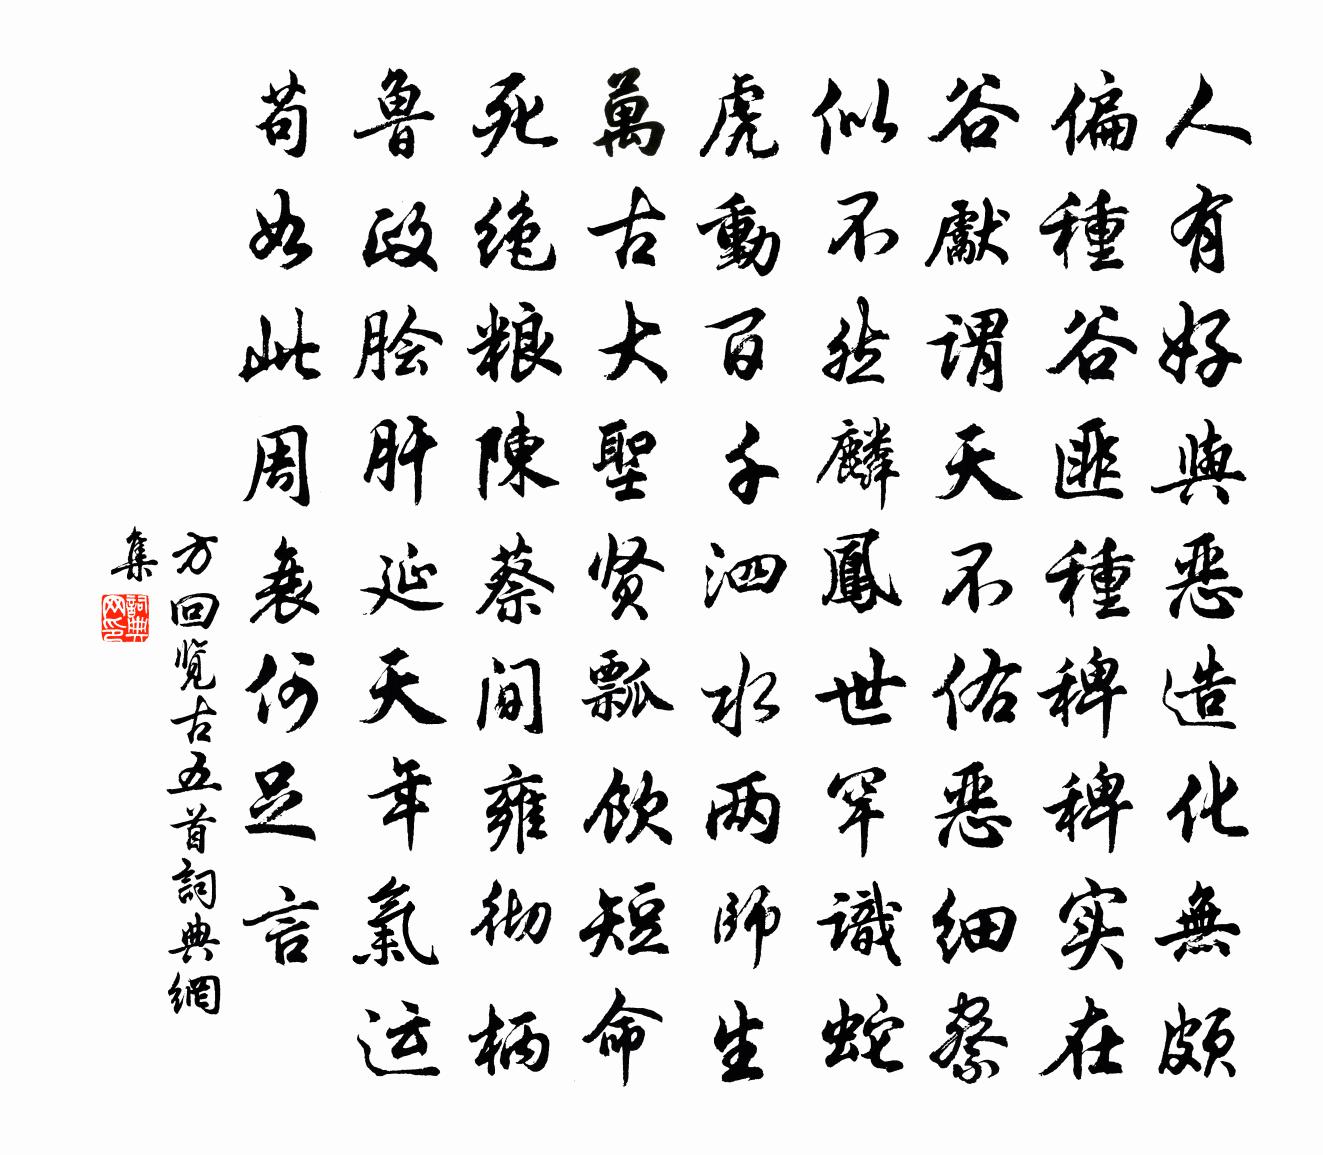 人有好與恶造化無颇
偏種谷匪種稗稗实在
谷獻謂天不佑恶细察
似不然麟鳳世罕識蛇
虎動百千泗水两師生
萬古大聖贤瓢飲短命
死绝粮陳蔡間雍彻柄
鲁政脍肝延天年氣运
苟如此周衰何足言
方回览古五首詞典網
集
詞典网印